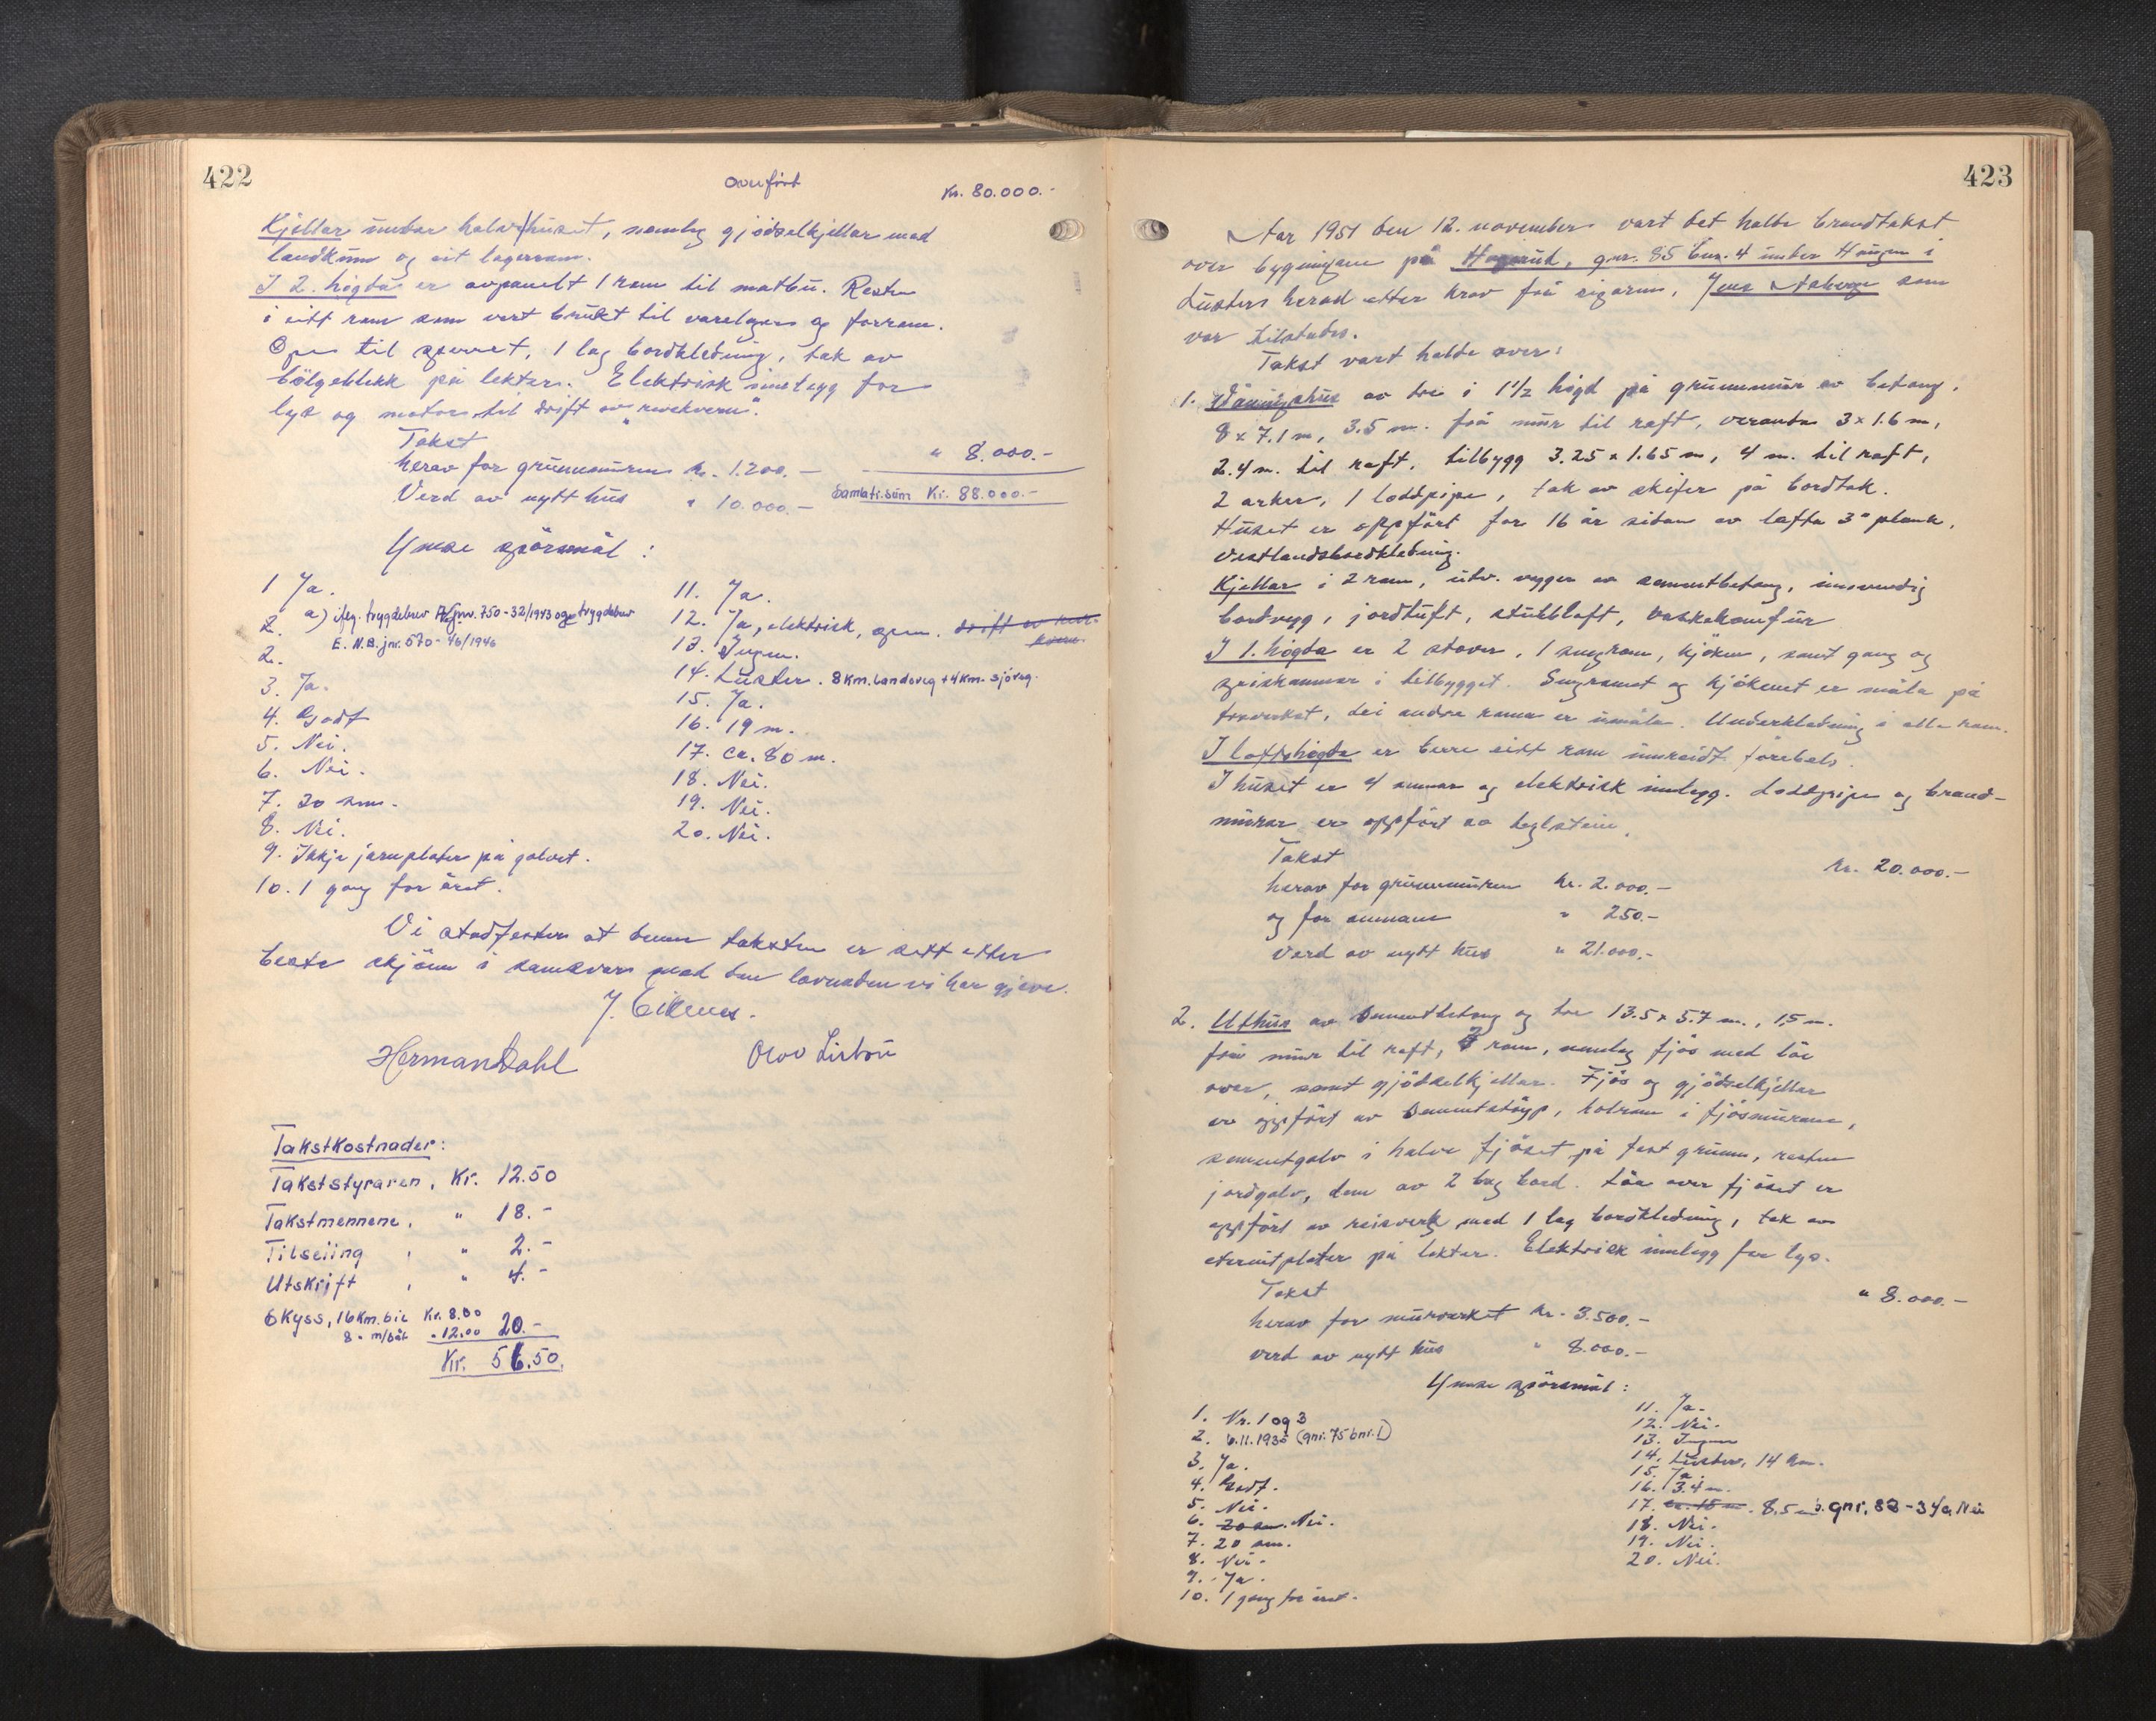 422
Overført
Kr. 80.000.-
Kjellar under halve huset, nemleg gjödselkjellar med
landkum og eit lagerrom.
I 2. högda er avpanelt 1 rom til matbu. Resten
i eitt rom som vert brukt til varelager og forrom.
Open til sperret, 1 lag bordkledning, tak av
bölgeblekk på lekter. Elektrisk innlegg for
lys og motor til drift av
Takst " 8.000.-
herav for grunnmuren kr. 1.200.-
Verd av nytt hus " 10.000.- Samla ti.sum Kr. 88.000.-
Ymse spörsmål :
1 Ja.
2. a) iføg. trygdebrev jnr. 750-32/1943 og trygdebrev
E. N.B. jnr. 570-46/1946
2.
3. Ja.
4. Godt
5. Nei.
6. Nei.
7. 20 sm.
8. Nei.
9. Ikkje jarnplater på golvet.
10. 1 gong for året.
11. Ja.
12. Ja, elektrisk, open. drift av
kvern.
13. Ingen.
14. Luster. 8 km. landveg + 4 km. sjöveg.
15. Ja.
16. 19 m.
17. ca. 80 m.
18. Nei.
19. Nei.
20. Nei.
Vi stadfester at denne taksten er sett etter
beste skjönn i samsvar med den lovnaden vi har gjeve.
J. Eikenes.
Herman Dahl Olav Lirbou
Takstkostnader:
Takststyraren, Kr. 12.50
Takstmennene, " 18.-
Tilseiing , " 2.-
Utskrift , " 4.-
Skyss, 16 km. bil Kr. 8.00
8 " m/båt " 12.00 20.-
Kr. 56.50.
423
År 1951 den 12. november vart det halde brandtakst
over bygningane på Haugrud, gnr. 85 bnr. 4 under Haugen i
Lusters herad etter krav frå eigaren, Jens Aaberge som
var tilstades.
Takst vart halde over:
1. Våningshus av tre i 1 1/2 högd på grunnmur av betong,
8 x 7.1 m, 3.5 m. frå mur til raft, veranda 3 x 1.6 m,
2.4 m. til raft, tilbygg 3.25 x 1.65 m, 4 m. til raft,
2 arker, 1 loddpipe, tak av skifer på bordtak.
Huset er oppfört for 16 år sidan av lafta 3" plank,
Vestlandsbordkledning.
Kjellar i 2 rom, utv. vegger av sementbetong, innvendig
bordvegg, jordtuft, stubbloft, vaskekomfur
I 1. högda er 2 stover, 1 sengrom, kjöken, samt gang og
spiskammer i tilbygget. Sengromet og kjökenet er måla på
treverket, dei andre romma er umåla. Underkledning i alle rom.
I loftshögda er berre eitt rom innreidt förebels.
I huset er 4 omnar og elektrisk innlegg. Loddpipe og brand-
murar er oppfört av teglstein.
Takst kr. 20.000.-
herav for grunnmuren kr. 2.000.-
og for omnane " 250.-
Verd av nytt hus " 21.000.-
2. Uthus av Sementbetong og tre 13.5 x 5.7 m., 1,5 m.
frå mur til raft, 3 rom, nemleg fjös med löe
over, samt gjödselkjellar. Fjös og gjödselkjellar
er oppfört av Sementstöyp, holrom i fjösmurane,
sementgolv i halve fjöset på fast grunn, resten
jordgolv, dem av 2 lag bord. Löa over fjöset er
oppfört av reisverk med 1 lag bordkledning, tak av
eternitplater på lekter. Elektrisk innlegg for lys.
Takst " 8.000.-
herav for murverket kr. 3.500.-
verd av nytt hus " 8.000.-
Ymse spörsmål :
1. Nr. 1 og 3
2. 6.11.1935 (gnr. 75 bnr. 1)
3. Ja.
4. Godt.
5. Nei.
6. 20 sm. Nei.
7. 20 sm.
8. Nei.
9. Ja.
10. 1 gong for året.
11. Ja.
12. Nei.
13. Ingen
14. Luster, 14 km.
15. Ja.
16. 3.4 m.
17. ca. 15 m. 8.5 m b. gnr. 88-3 Nei
18. Nei.
19. Nei.
20. Nei.